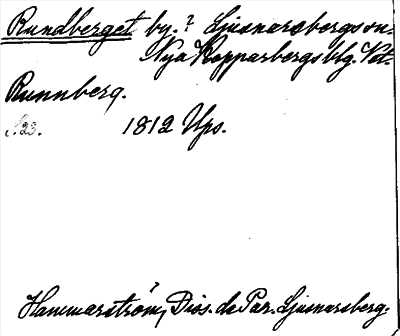 Rundberget by.? Ljusnarsbergs sn.
Nya Kopparbergs blg. Vst.
Runnberg.
S. 23. 1812 Ups.
Hammarström, Diss. de Par. Ljusnarsberg.